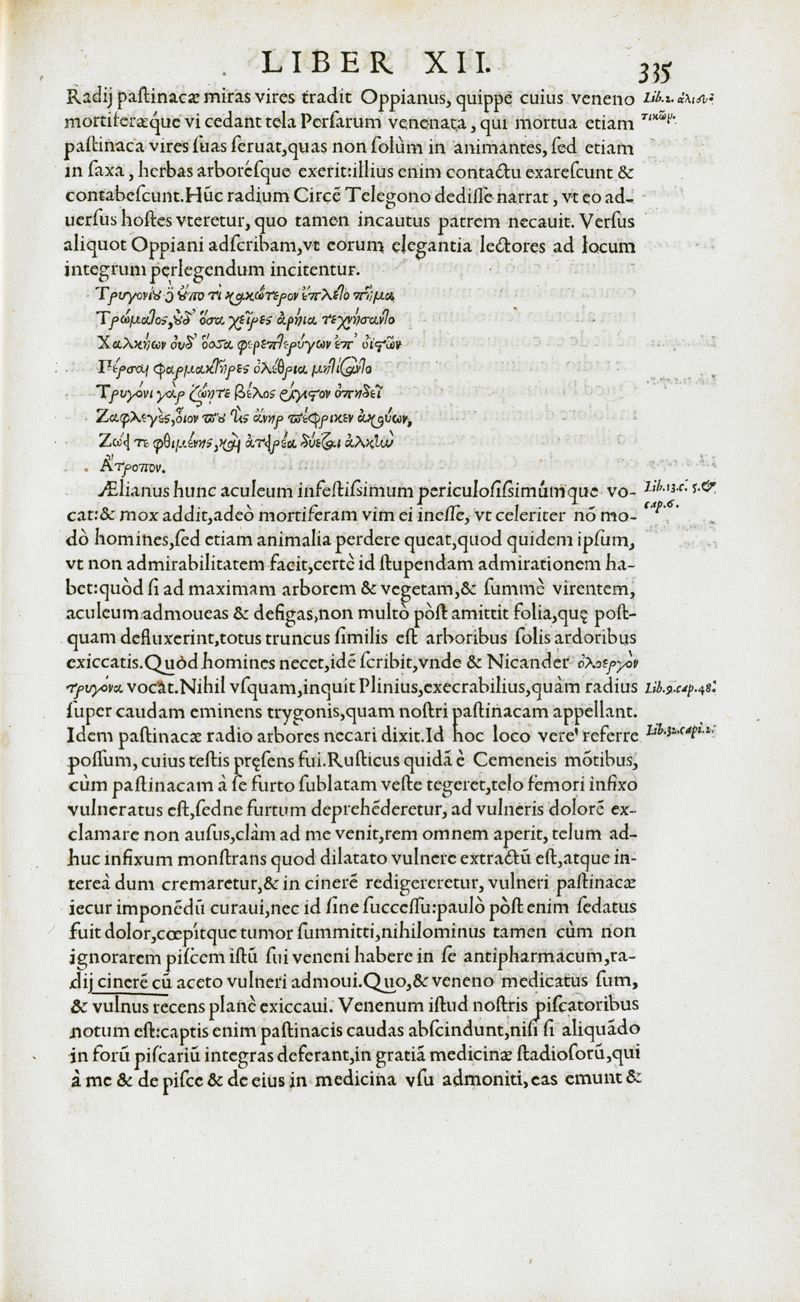 LIBER XII. 335
Radij paſtinacæ miras vires tradit Oppianus, quippē cuius veneno
Lib.2. ἁλιευ-
mortiferæq́ue vi cedant tela Perſarum venenata, qui mortua etiam
τικῶμ.
paſtinaca vires ſuas ſeruat,quas non ſolùm in animantes, ſed etiam
in ſaxa, herbas arboréſque exerit:illius enim contactu exareſcunt &
contabeſcunt.Hūc radium Circē Telegono dediſſe narrat, vt eo ad-
uerſus hoſtes vteretur, quo tamen incautus patrem necauit. Verſus
aliquot Oppiani adſcribam,vt eorum elegantia lectores ad locum
integrum perlegendum incitentur.
Τρυγόνιου δ' οὔπο τὶ κακώτερον ἔπλετο πῆμα
Τρώματος,οὐδ' ὅσα χεῖρες ἀρήια τεχνήσαντο
Χαλκήων οὐδ' ὅσσα φερεπτερύγων ἐπ' ὀϊστῶν
Πέρσαι φαρμακτῆρες ὀλέθρια μητίζοντο
Τρυγόνι γὰρ ζώητε βέλος ῥίγιστον ὀπηδεῖ
Ζαφλεγὲς,οἷον που τὶς ἀνὴρ πέφρικεν ἀκούων,
Ζώει τε φθιμένης,καὶ ἀτειρέα δύεται ἀλκὴν
Ἄτροπον.
Ælianus hunc aculeum infeſtiſsimum periculoſiſsimúmque vo-
Lib.13.c. 5.&
cat:& mox addit,adeò mortiferam vim ei ineſſe, vt celeriter nō mo-
cap.6.
dò homines,ſed etiam animalia perdere queat,quod quidem ipſum,
vt non admirabilitatem facit,certè id ſtupendam admirationem ha-
bet:quòd ſi ad maximam arborem & vegetam,& ſummè virentem,
aculeum admoueas & defigas,non multò pòſt amittit folia,quę poſt-
quam defluxerint,totus truncus ſimilis eſt arboribus ſolis ardoribus
exiccatis.Quòd homines necet,idē ſcribit,vnde & Nicander ὀλοεργὸν
τρυγόνα vocat.Nihil vſquam,inquit Plinius,execrabilius,quàm radius
Lib.9.cap.48.
ſuper caudam eminens trygonis,quam noſtri paſtinacam appellant.
Idem paſtinacæ radio arbores necari dixit.Id hoc loco verè referre
Lib.32.capi.2.
poſſum, cuius teſtis pręſens fui.Ruſticus quidā è Cemeneis mōtibus,
cùm paſtinacam à ſe furto ſublatam veſte tegeret,telo femori infixo
vulneratus eſt,ſedne furtum deprehēderetur, ad vulneris dolorē ex-
clamare non auſus,clàm ad me venit,rem omnem aperit, telum ad-
huc infixum monſtrans quod dilatato vulnere extractū eſt,atque in-
tereà dum cremaretur,& in cinerē redigereretur, vulneri paſtinacæ
iecur imponēdū curaui,nec id ſine ſucceſſu:paulò pòſt enim ſedatus
fuit dolor,cœpitque tumor ſummitti,nihilominus tamen cùm non
ignorarem piſcem iſtū ſui veneni habere in ſe antipharmacum,ra-
dij cinerē cū aceto vulneri admoui.Quo,& veneno medicatus ſum,
& vulnus recens planè exiccaui. Venenum iſtud noſtris piſcatoribus
notum eſt:captis enim paſtinacis caudas abſcindunt,niſi ſi aliquādo
in forū piſcariū integras deferant,in gratiā medicinæ ſtadioſorū,qui
à me & de piſce & de eius in medicina vſu admoniti,eas emunt &